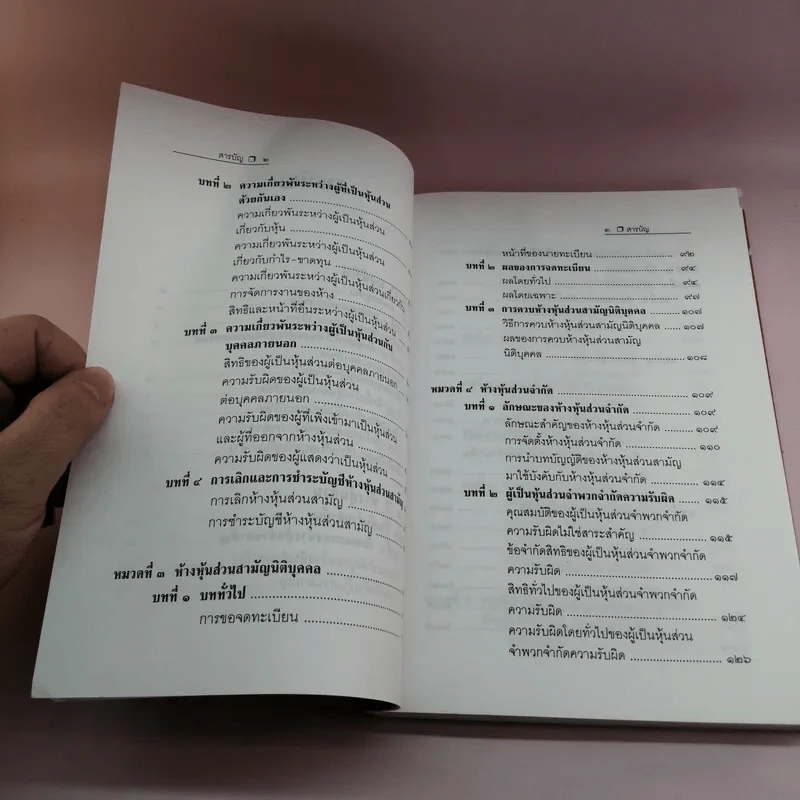 สารบัญ ❒ ๒
บทที่ ๒ ความเกี่ยวพันระหว่างผู้ที่เป็นหุ้นส่วน
ด้วยกันเอง ........................
ความเกี่ยวพันระหว่างผู้เป็นหุ้นส่วน
เกี่ยวกับหุ้น ........................
ความเกี่ยวพันระหว่างผู้เป็นหุ้นส่วน
เกี่ยวกับกำไร-ขาดทุน ........................
ความเกี่ยวพันระหว่างผู้เป็นหุ้นส่วนเกี่ยวกับ
การจัดการงานของห้าง ........................
สิทธิและหน้าที่อื่นระหว่างผู้เป็นหุ้นส่วน
บทที่ ๓ ความเกี่ยวพันระหว่างผู้เป็นหุ้นส่วนกับ
บุคคลภายนอก ........................
สิทธิของผู้เป็นหุ้นส่วนต่อบุคคลภายนอก
ความรับผิดของผู้เป็นหุ้นส่วน
ต่อบุคคลภายนอก ........................
ความรับผิดของผู้ที่เพิ่งเข้ามาเป็นหุ้นส่วน
และผู้ที่ออกจากห้างหุ้นส่วน ........................
ความรับผิดของผู้แสดงว่าเป็นหุ้นส่วน
บทที่ ๔ การเลิกและการชำระบัญชีห้างหุ้นส่วนสามัญ
การเลิกห้างหุ้นส่วนสามัญ ........................
การชำระบัญชีห้างหุ้นส่วนสามัญ ........................
หมวดที่ ๓ ห้างหุ้นส่วนสามัญนิติบุคคล ........................
บทที่ ๑ บททั่วไป ........................
การขอจดทะเบียน ........................
๓ ❒ สารบัญ
หน้าที่ของนายทะเบียน ........................ ๙๒
บทที่ ๒ ผลของการจดทะเบียน ........................ ๙๔
ผลโดยทั่วไป ........................ ๙๔
ผลโดยเฉพาะ ........................ ๙๗
บทที่ ๓ การควบห้างหุ้นส่วนสามัญนิติบุคคล ........................ ๑๐๗
วิธีการควบห้างหุ้นส่วนสามัญนิติบุคคล ........................ ๑๐๗
ผลของการควบห้างหุ้นส่วนสามัญ
นิติบุคคล ........................ ๑๐๘
หมวดที่ ๔ ห้างหุ้นส่วนจำกัด ........................ ๑๐๙
บทที่ ๑ ลักษณะของห้างหุ้นส่วนจำกัด ........................ ๑๐๙
ลักษณะสำคัญของห้างหุ้นส่วนจำกัด ........................ ๑๐๙
การจัดตั้งห้างหุ้นส่วนจำกัด ........................ ๑๑๐
การนำบทบัญญัติของห้างหุ้นส่วนสามัญ
มาใช้บังคับกับห้างหุ้นส่วนจำกัด ........................ ๑๑๔
บทที่ ๒ ผู้เป็นหุ้นส่วนจำพวกจำกัดความรับผิด ........ ๑๑๕
คุณสมบัติของผู้เป็นหุ้นส่วนจำพวกจำกัด
ความรับผิดไม่ใช่สาระสำคัญ ........................ ๑๑๕
ข้อจำกัดสิทธิของผู้เป็นหุ้นส่วนจำพวกจำกัด
ความรับผิด ........................ ๑๑๗
สิทธิทั่วไปของผู้เป็นหุ้นส่วนจำพวกจำกัด
ความรับผิด ........................ ๑๒๔
ความรับผิดโดยทั่วไปของผู้เป็นหุ้นส่วน
จำพวกจำกัดความรับผิด ........................ ๑๒๖